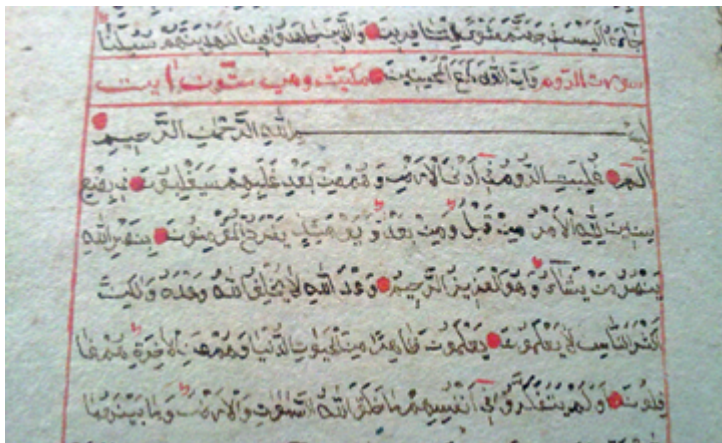 جَاءَهُ أَلَيْسَ فِي جَهَنَّمَ مَثْوًى لِلْكَافِرِينَ وَالَّذِينَ جَاهَدُوا فِينَا لَنَهْدِيَنَّهُمْ سُبُلَنَا
سورت الروم وَإِنَّ اللَّهَ لَمَعَ الْمُحْسِنِينَ مكيت وهي ستون ايت
بِسْمِ اللَّهِ الرَّحْمَنِ الرَّحِيمِ
الم غُلِبَتِ الرُّومُ فِي أَدْنَى الْأَرْضِ وَهُمْ مِنْ بَعْدِ غَلَبِهِمْ سَيَغْلِبُونَ فِي بِضْعِ
سِنِينَ لِلَّهِ الْأَمْرُ مِنْ قَبْلُ وَمِنْ بَعْدُ وَيَوْمَئِذٍ يَفْرَحُ الْمُؤْمِنُونَ بِنَصْرِ اللَّهِ
يَنْصُرُ مَنْ يَشَاءُ وَهُوَ الْعَزِيزُ الرَّحِيمُ وَعْدَ اللَّهِ لَا يُخْلِفُ اللَّهُ وَعْدَهُ وَلَكِنَّ
أَكْثَرَ النَّاسِ لَا يَعْلَمُونَ يَعْلَمُونَ ظَاهِرًا مِنَ الْحَيَوةِ الدُّنْيَا وَهُمْ عَنِ الْآخِرَةِ هُمْ غَا
فِلُونَ أَوَلَمْ يَتَفَكَّرُوا فِي أَنْفُسِهِمْ مَا خَلَقَ اللَّهُ السَّمَوَاتِ وَالْأَرْضَ وَمَا بَيْنَهُمَا